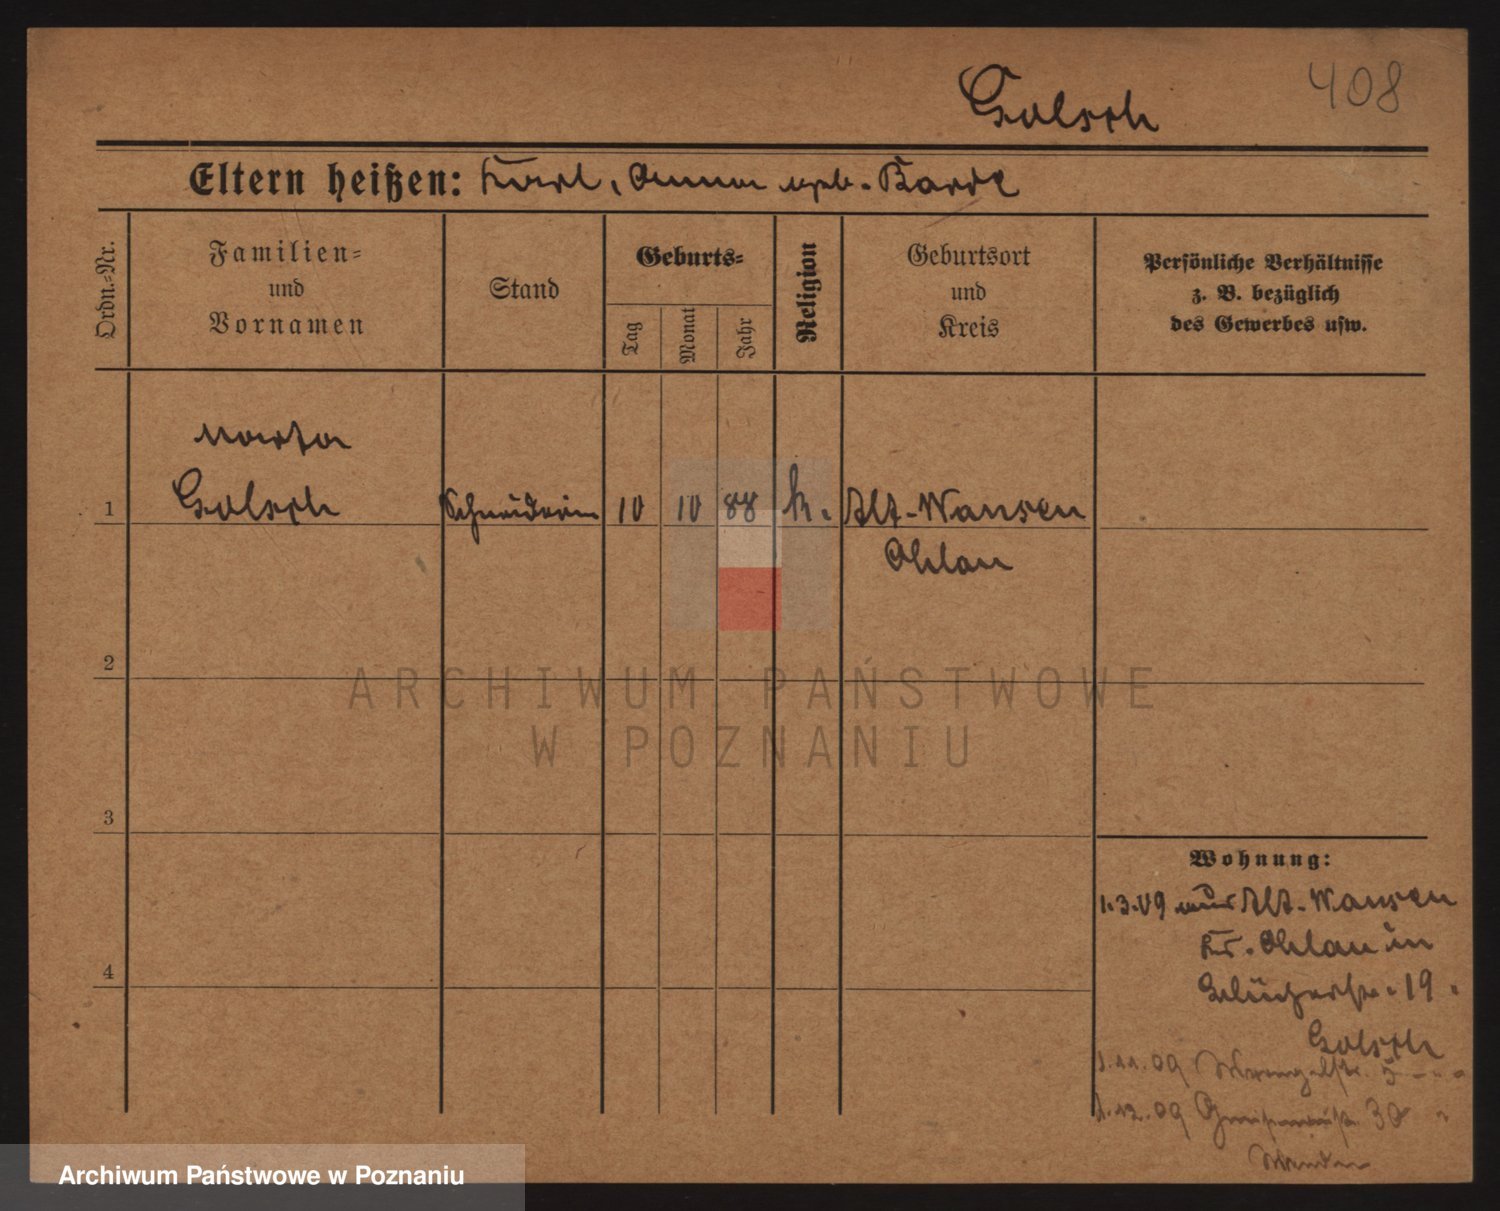 408
Golsch
Eltern heißen: Karl, Anna geb. Barde
Ordn.-Nr.
Familien-
und
Vornamen
Stand
Geburts-
Tag
Monat
Jahr
Religion
Geburtsort
und
Kreis
Persönliche Verhältnisse
z. B. bezüglich
des Gewerbes usw.
Marta
1 Golsch Schneiderin 10 10 88 k. Alt-Wansen
Ohlau
2
3
4
Wohnung:
1.3.09 aus Alt-Wansen
Kr. Ohlau in
Blücherstr. 19.
Golsch
1.11.09 Wrangelstr. 5
1.12.09 Gneisenaustr. 30
ARCHIWUM PAŃSTWOWE
W POZNANIU
Archiwum Państwowe w Poznaniu